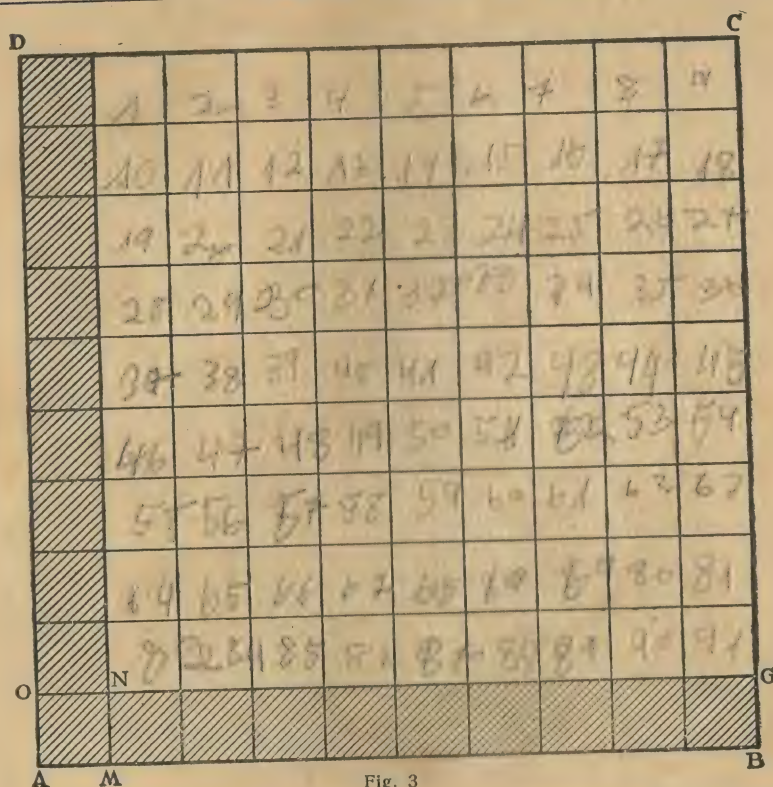 D C
1 2 3 4 5 6 7 8 9
10 11 12 13 14 15 16 17 18
19 20 21 22 23 24 25 26 27
28 29 30 31 32 33 34 35 36
37 38 39 40 41 42 43 44 45
46 47 48 49 50 51 52 53 54
55 56 57 58 59 60 61 62 63
64 65 66 67 68 80 81
85 87 89 90 91
O N G
A M B
Fig. 3